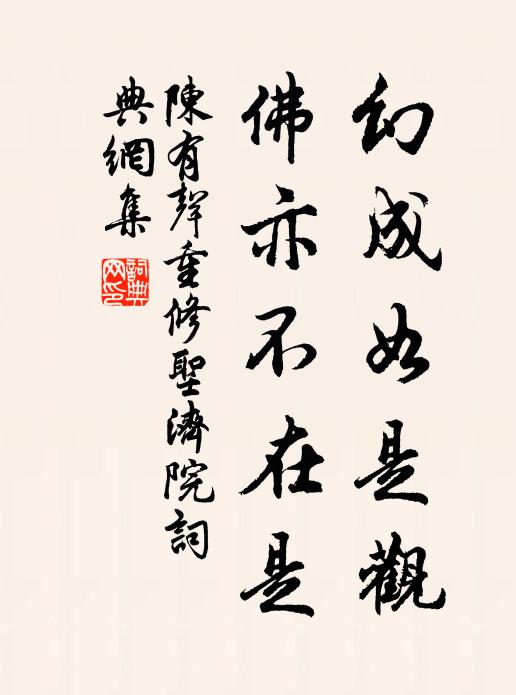 幻成如是觀
佛亦不在是
陳有聲重修聖濟院詞
典網集
詞典
网印